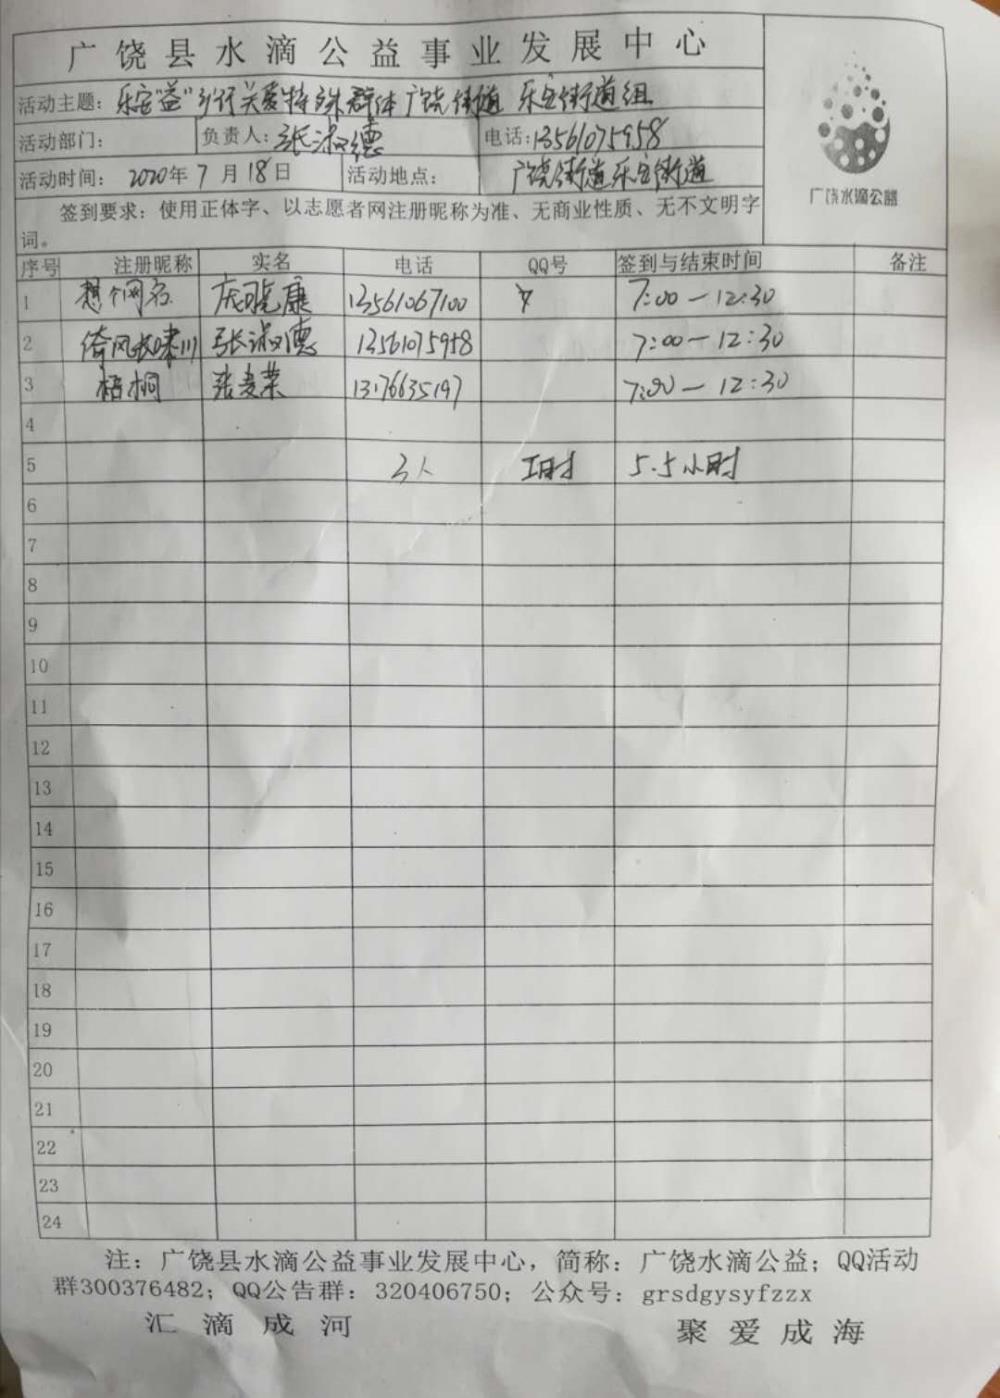 广饶县水滴公益事业发展中心
活动主题: 乐安"益"乡行关爱特殊群体 广饶街道 乐安街道组
活动部门: 负责人: 张淑德 电话:13561075958
活动时间: 2020年 7 月 18 日 活动地点: 广饶街道乐安街道
广饶水滴公益
签到要求: 使用正体字、以志愿者网注册昵称为准、无商业性质、无不文明字
词。
序号 注册昵称 实名 电话 QQ号 签到与结束时间 备注
1 想个网名 庞晓康 13561067100 女 7:00-12:30
2 倚风长啸川 张淑德 13561075958 7:00-12:30
3 梧桐 张麦荣 13176635197 7:00-12:30
4
5 3人 工时 5.5小时
6
7
8
9
10
11
12
13
14
15
16
17
18
19
20
21
22
23
24
注: 广饶县水滴公益事业发展中心, 简称: 广饶水滴公益; QQ活动
群300376482; QQ公告群: 320406750; 公众号: grsdgysyfzzx
汇滴成河 聚爱成海